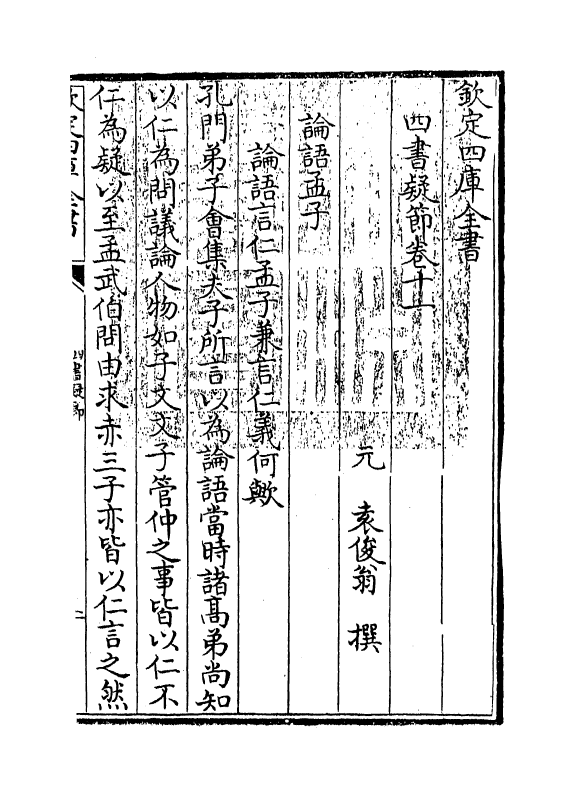 欽定四庫全書
四書疑節卷十一
元 袁俊翁 撰
論語孟子
論語言仁孟子兼言仁義何歟
孔門弟子會集夫子所言以為論語當時諸髙弟尚知
以仁為問議論人物如子文文子管仲之事皆以仁不
仁為疑以至孟武伯問由求赤三子亦皆以仁言之然
欽定四庫全書
四書疑節